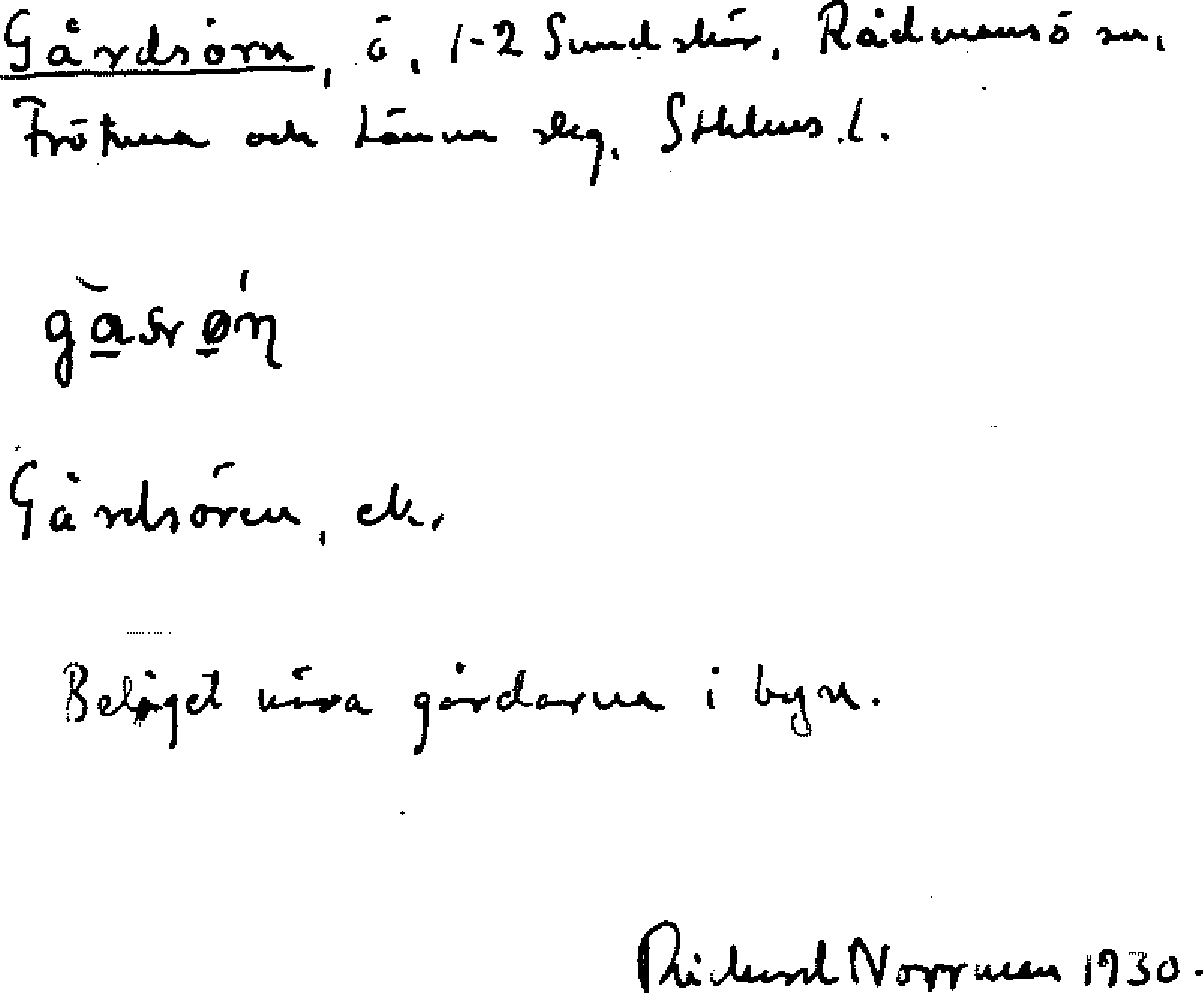 Gårdsörn, ö, 1-2 Sundskär, Rådmansö sn,
Frötuna och Länna skg, Sthlms l.
Gårdsören, ek.
Beläget nära gårdarna i byn.
Rickard Norrman 1930.